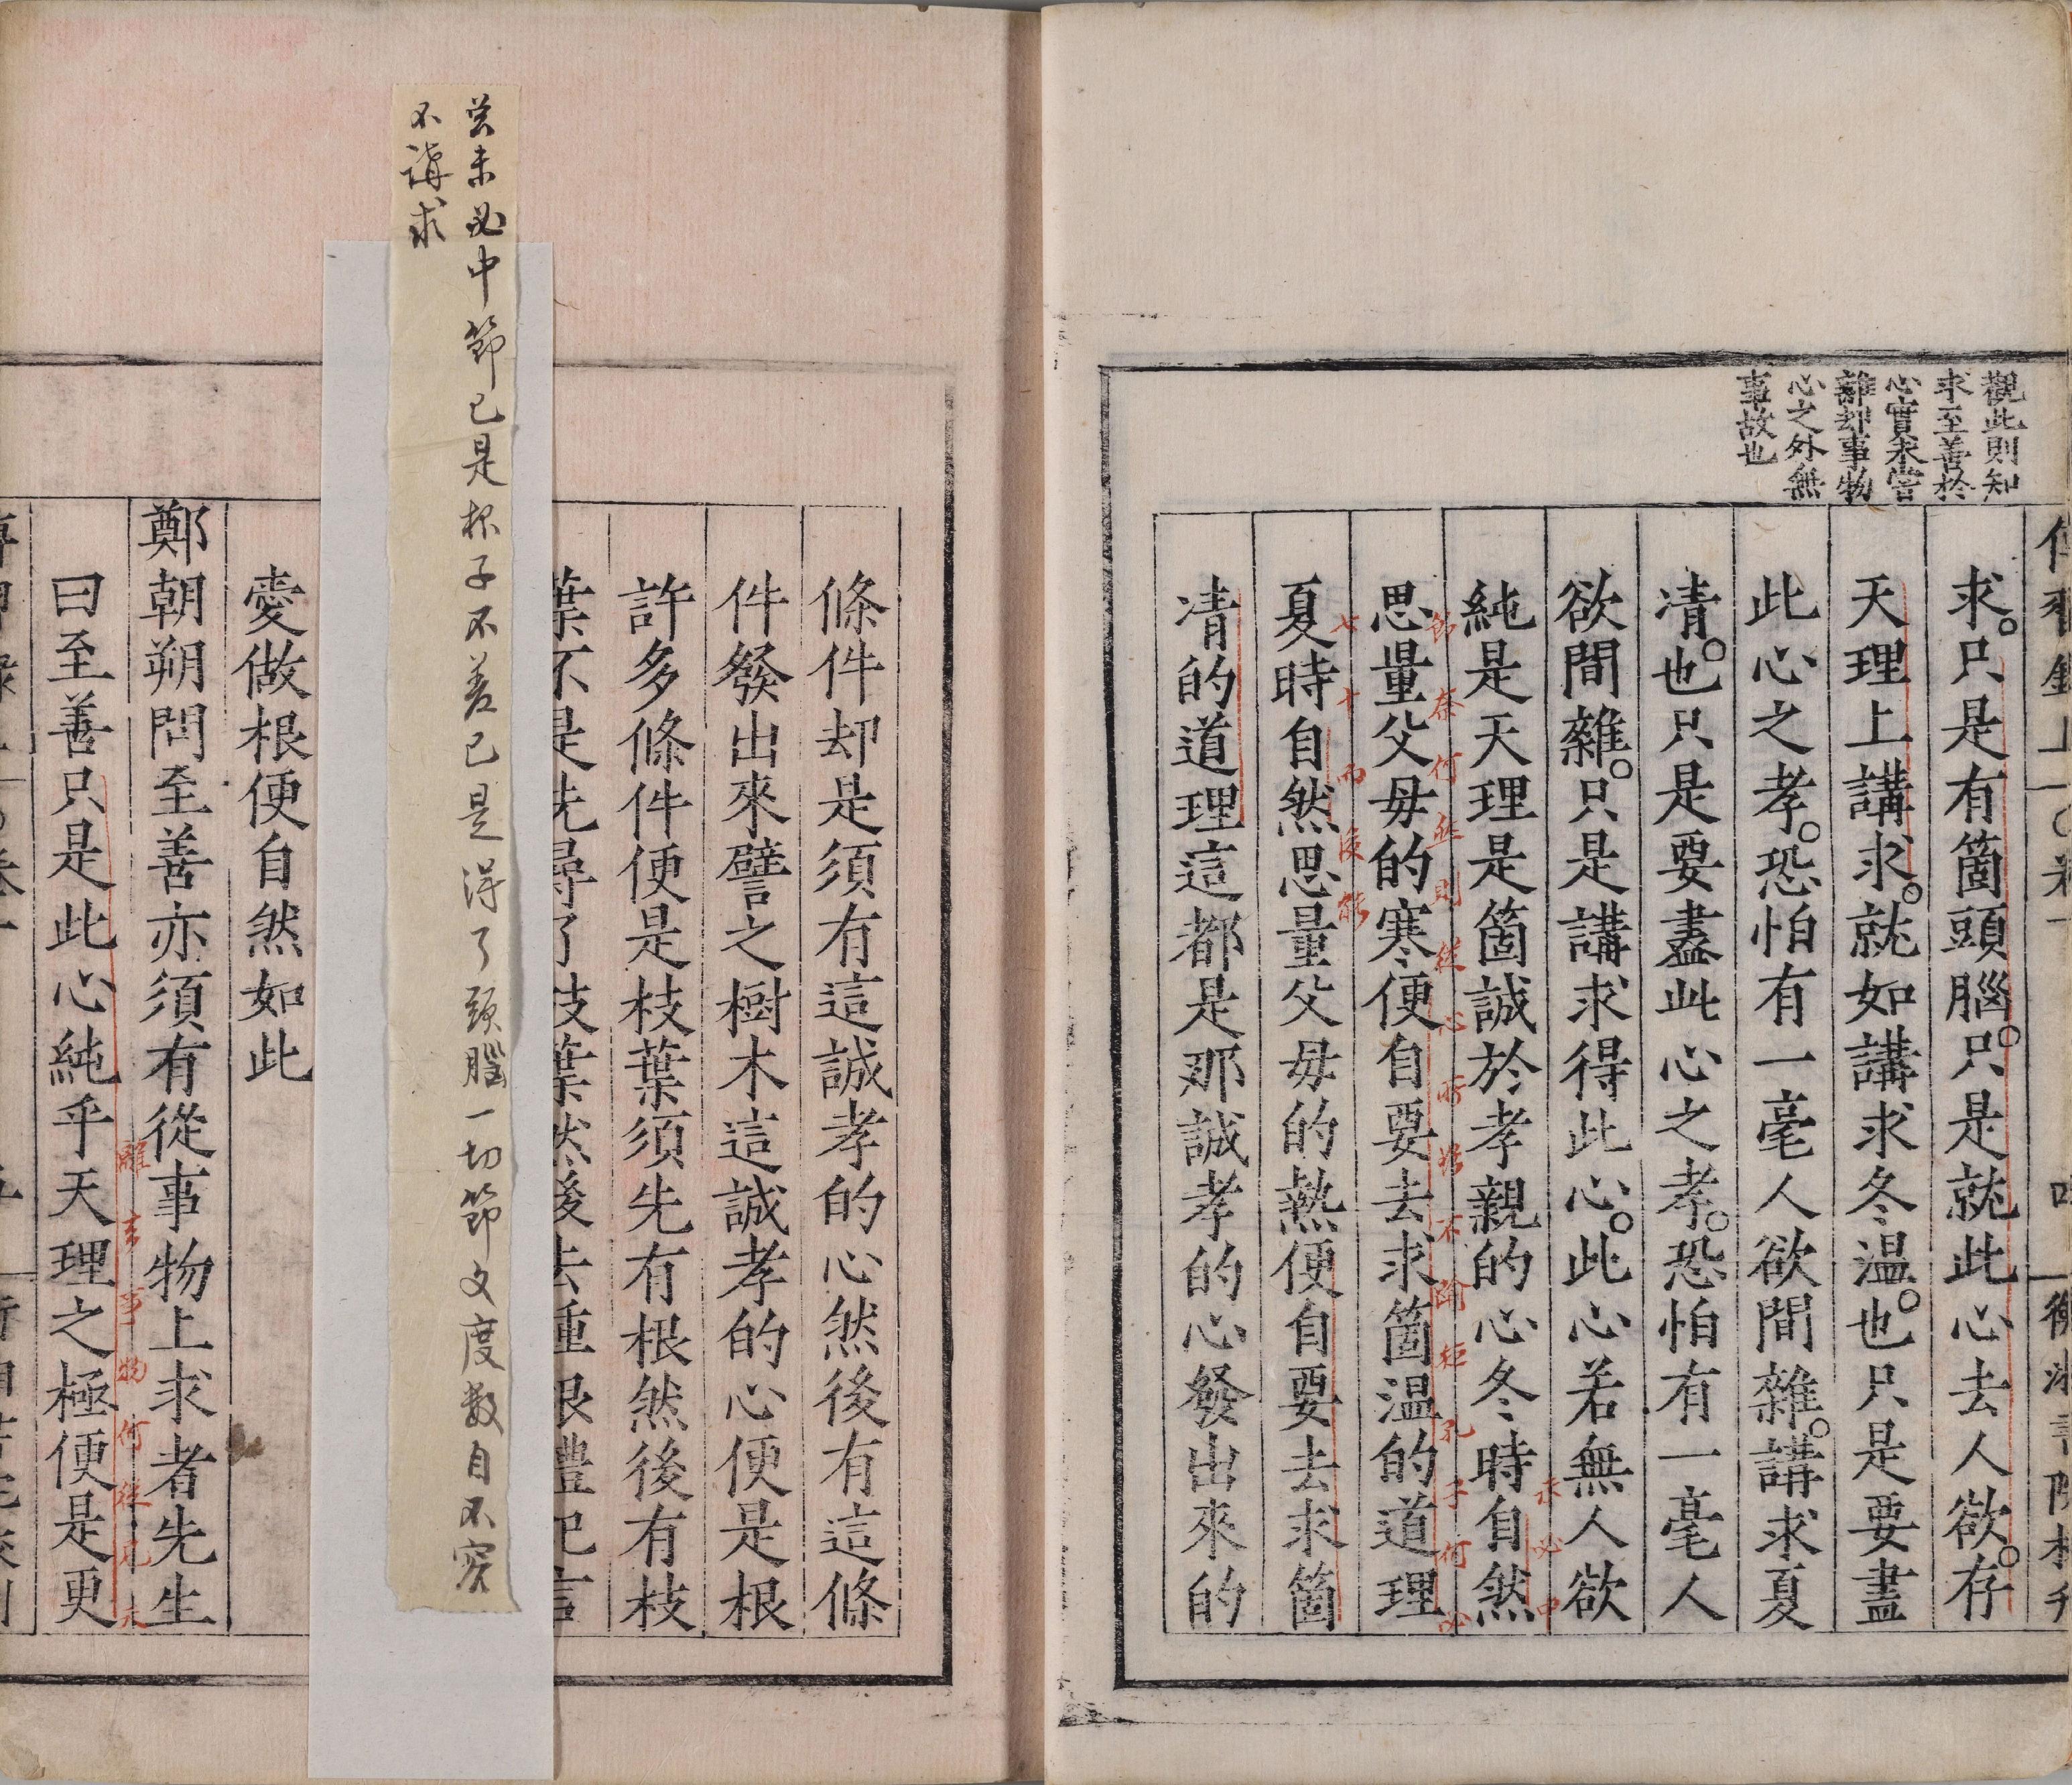 觀此則知
求至善於
心實未嘗
離却事物
心之外無
事故也
求只是有箇頭腦只是就此心去人欲存
天理上講求就如講求冬溫也只是要盡
此心之孝恐怕有一毫人欲間雜講求夏
凊也只是要盡此心之孝恐怕有一毫人
欲間雜只是講求得此心此心若無人欲
純是天理是箇誠於孝親的心冬時自然
思量父母的寒便自要去求箇溫的道理
夏時自然思量父母的熱便自要去求箇
凊的道理這都是那誠孝的心發出來的
未必中
何必
七十而後能
條件却是須有這誠孝的心然後有這條
件發出來譬之樹木這誠孝的心便是根
許多條件便是枝葉須先有根然後有枝
葉不是先尋了枝葉然後去種根禮記言
未必中節已是杯子不差已是得了頭腦一切節文度数自不容
不講求
愛做根便自然如此
鄭朝朔問至善亦須有從事物上求者先生
離去事物何從
曰至善只是此心純乎天理之極便是更